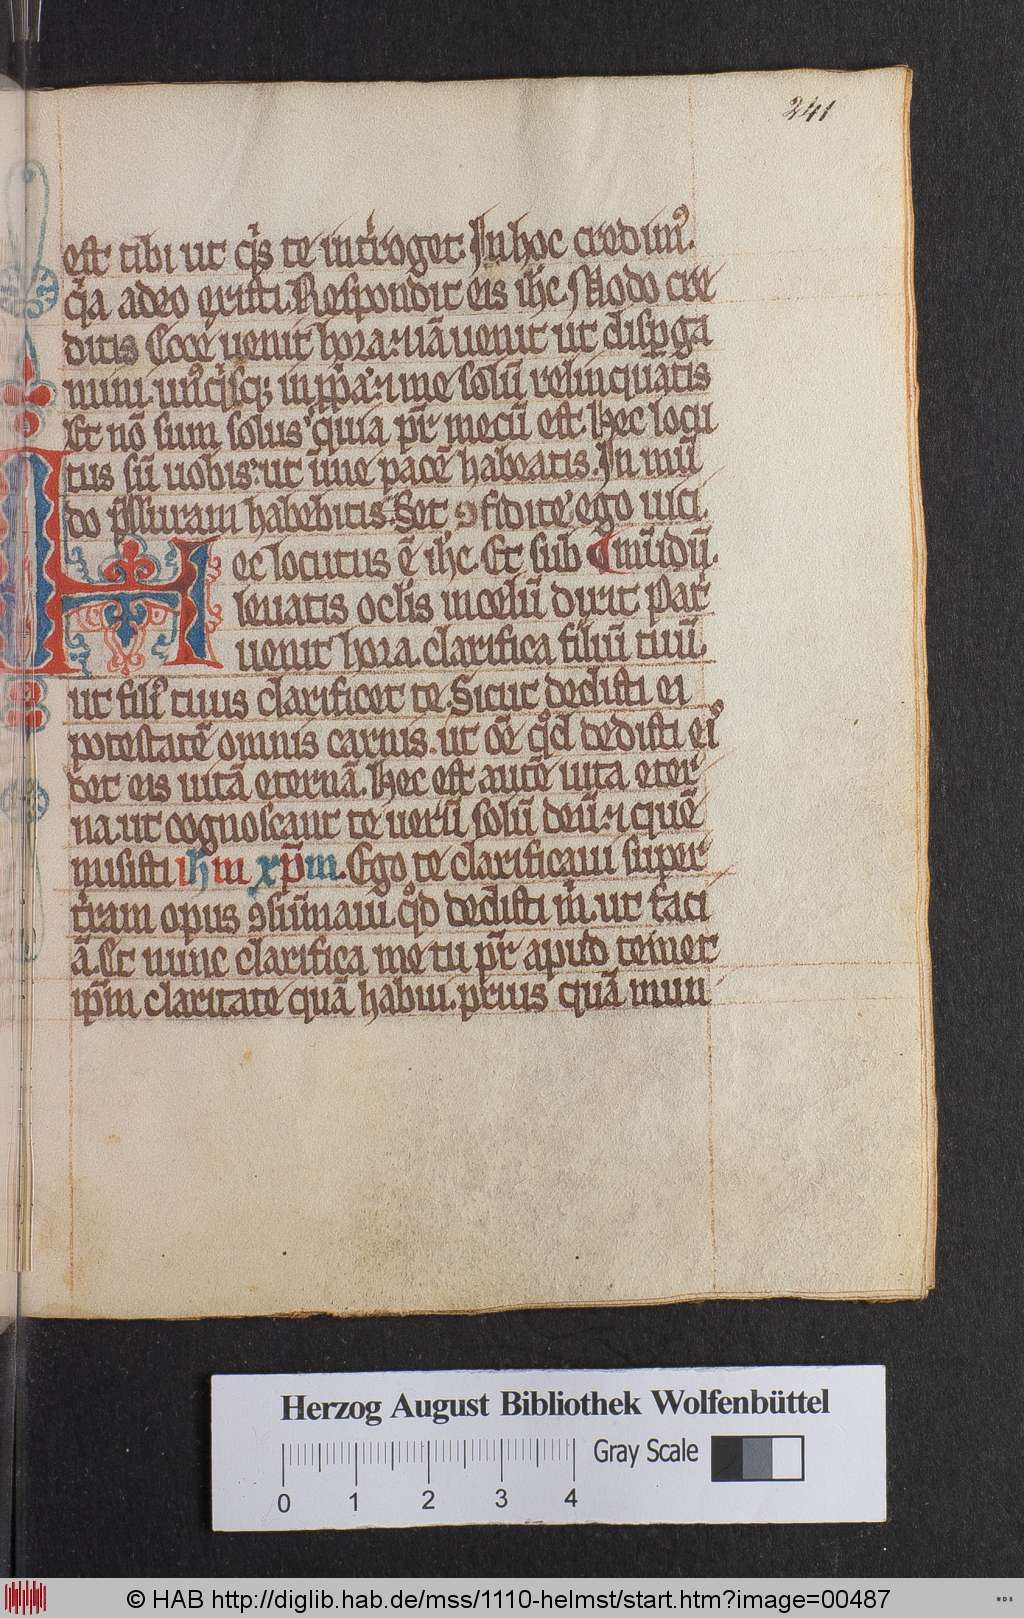 241
est tibi ut q̇s te int̄roget. In hoc credim᷒.
q̇a a deo existi. Respondit eis ih̄c. Modo cre
ditis Ecce uenit hora. ⁊ iā uenit ut disꝑga
mini. un᷒q̇sq; in ꝓpͥa. ⁊ me solū relinquatis
Et nō sum solus quia pr̄ mecū est. Hec locu
tus sū uobis. ut ī me pacē habeatis. In mū
do p̄ssuram habebitis. Set ꝯfidite ego uici.
ec locutus ē ih̄c. Et sub mūdū.
leuatis oclīs in celū dixit Pat̄
uenit hora. clarifica filiū tuū.
ut fili᷒ tuus clarificet te. Sicut dedisti ei
potestatē omnis carnis. ut oē qͦd dedisti ei
det eis uitā eternā. Hec est autē uita eter
na. ut cognoscant te uerū solū deū. ⁊ quē
misisti ih̄m xp̄m. Ego te clarificaui super
t̄ram opus ꝯsūmaui. qͦd dedisti m̄. ut faci
ā. Et nunc clarifica me tu pr̄ apud temet
ip̄m claritate quā habui. prius quā mun
H
Herzog August Bibliothek Wolfenbüttel
Gray Scale
0 1 2 3 4
© HAB http://diglib.hab.de/mss/1110-helmst/start.htm?image=00487